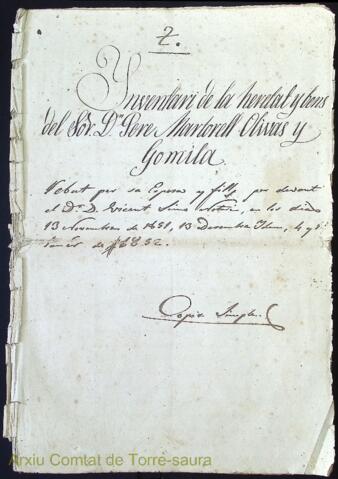 7.
Ynventari de la heretat y bens
del Sor. Dn. Pere Martorell Olivas y
Gomila.
Rebut per sa Esposa y fills, per devant
el Dr. D. Vicent Simo Notari, en los dias
13 Novembre de 1851, 13 Desembre Idem, 4 y
Janer de 1852.
Copia Simple
Arxiu Comtat de Torre-saura